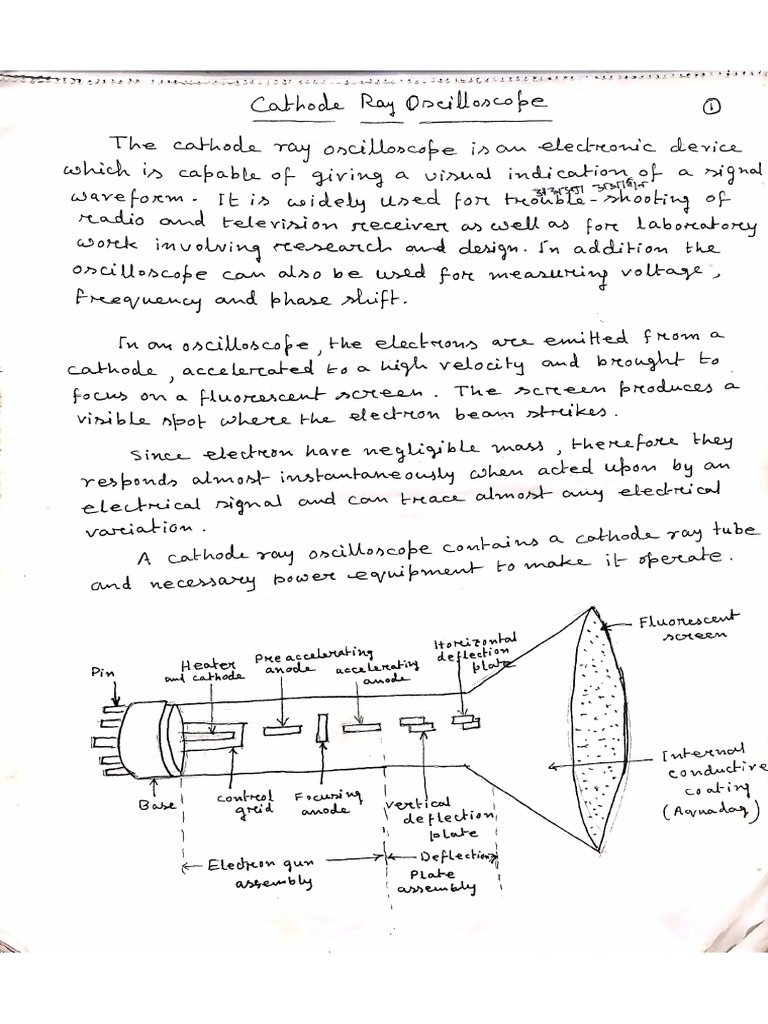 Cathode Ray Oscilloscope
1
The cathode ray oscilloscope is an electronic device
which is capable of giving a visual indication of a signal
waveform. It is widely used for trouble-shooting of
radio and television receiver as well as for laboratory
work involving research and design. In addition the
oscilloscope can also be used for measuring voltage,
frequency and phase shift.
In an oscilloscope, the electrons are emitted from a
cathode, accelerated to a high velocity and brought to
focus on a fluorescent screen. The screen produces a
visible spot where the electron beam strikes.
Since electron have negligible mass, therefore they
responds almost instantaneously when acted upon by an
electrical signal and can trace almost any electrical
variation.
A cathode ray oscilloscope contains a cathode ray tube
and necessary power equipment to make it operate.
Pin
Heater
and cathode
Pre accelerating
anode
accelerating
anode
Horizontal
deflection
plate
Fluorescent
screen
Base
control
grid
Focusing
anode
vertical
deflection
plate
Internal
conductive
coating
(Aqnadaq)
Electron gun
assembly
Deflection
Plate
assembly